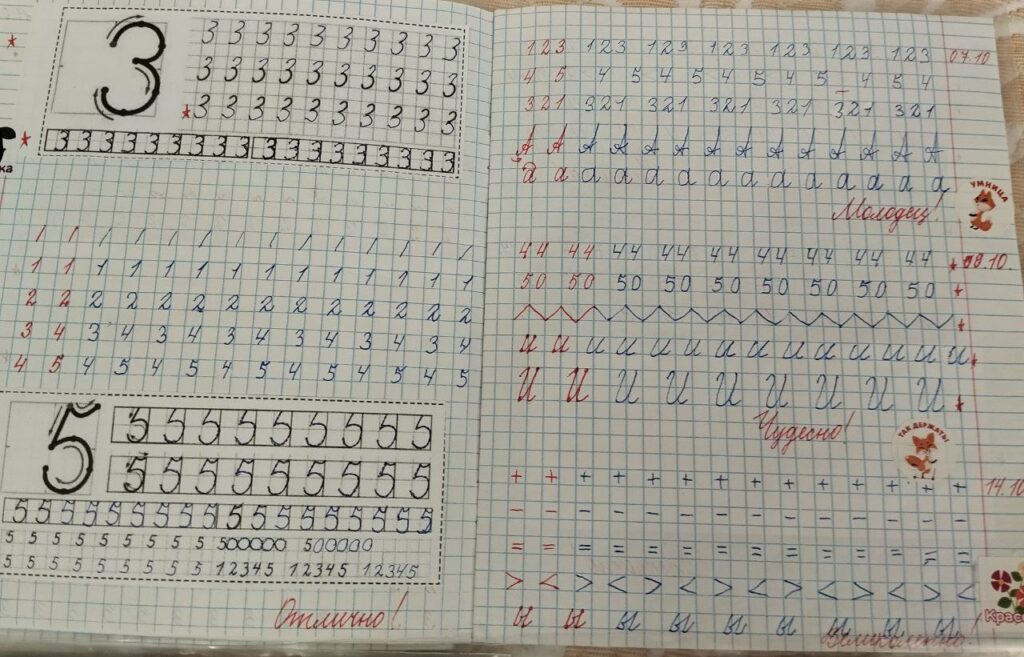 3
3 3 3 3 3 3 3 3 3 3
3 3 3 3 3 3 3 3 3 3
3 3 3 3 3 3 3 3 3 3
3 3 3 3 3 3 3 3 3 3 3 3 3 3 3 3 3 3
/ / / / / / / / / / / / / /
1 1 1 1 1 1 1 1 1 1 1 1 1 1
2 2 2 2 2 2 2 2 2 2 2 2 2 2
3 4 3 4 3 4 3 4 3 4 3 4 3 4
4 5 4 5 4 5 4 5 4 5 4 5 4 5
5
5 5 5 5 5 5 5 5 5
5 5 5 5 5 5 5 5 5
5 5 5 5 5 5 5 5 5 5 5 5 5 5 5 5 5 5
5 5 5 5 5 5 5 5 500000 500000
5 5 5 5 5 5 5 5 12345 12345 12345
Отлично!
123 123 123 123 123 123 123 07.10
4 5 4 5 4 5 4 5 4 5 4 5 4
321 321 321 321 321 321 321
А А А А А А А А А А А А А А
а а а а а а а а а а а а а а
УМНИЦА
Молодец!
44 44 44 44 44 44 44 44 44 09.10.
50 50 50 50 50 50 50 50 50
и и и и и и и и и и и и и и
И И И И И И И И И
Чудесно!
ТАК ДЕРЖАТЬ!
+ + + + + + + + + + + + + + 14.10
- - - - - - - - - - - - - -
= = = = = = = = = = = = = =
> < > < > < > < > < > < > <
ы ы ы ы ы ы ы ы ы
Великолепно!